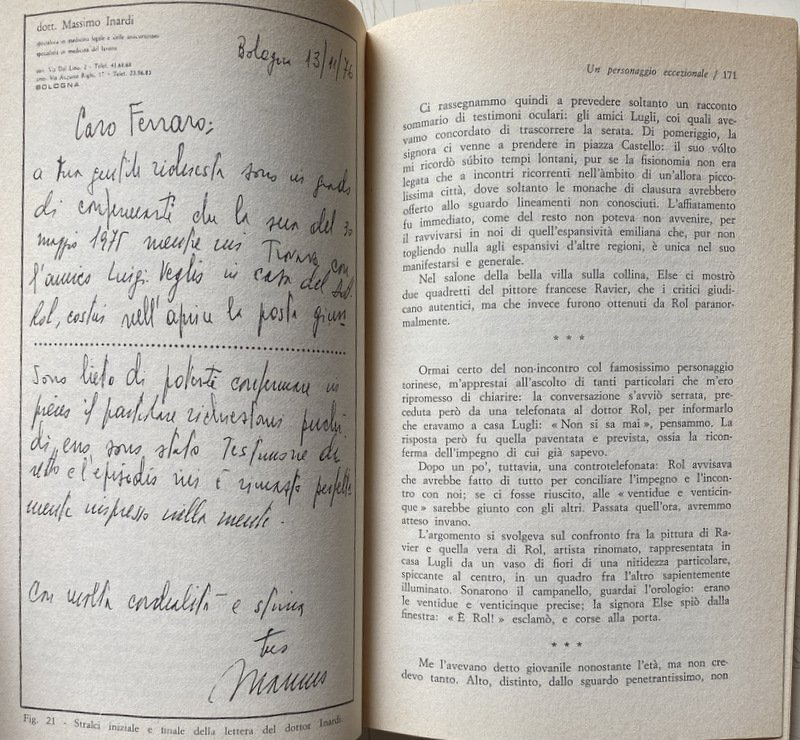 dott. Massimo Inardi
specialista in medicina legale e delle assicurazioni
specialista in medicina del lavoro
BOLOGNA
Bologna 13/11/76
Caro Ferraro;
a tua gentile richiesta sono in grado
di confermarti che la sera del 30
maggio 1975 mentre mi trovavo con
l'amico Luigi Veglis in casa del dot.
Rol, costui nell'aprire la posta giun-
Sono lieto di poterti confermare in
pieno il particolare richiestomi perché
di esso sono stato testimone di-
retto e l'episodio mi è rimasto perfetta-
mente impresso nella mente.
Con molta cordialità e stima
tuo
Massimo
Fig. 21 - Stralci iniziale e finale della lettera del dottor Inardi.
Un personaggio eccezionale / 171
Ci rassegnammo quindi a prevedere soltanto un racconto
sommario di testimoni oculari: gli amici Lugli, coi quali ave-
vamo concordato di trascorrere la serata. Di pomeriggio, la
signora ci venne a prendere in piazza Castello: il suo vólto
mi ricordò súbito tempi lontani, pur se la fisionomia non era
legata che a incontri ricorrenti nell'àmbito di un'allora picco-
lissima città, dove soltanto le monache di clausura avrebbero
offerto allo sguardo lineamenti non conosciuti. L'affiatamento
fu immediato, come del resto non poteva non avvenire, per
il ravvivarsi in noi di quell'espansività emiliana che, pur non
togliendo nulla agli espansivi d'altre regioni, è unica nel suo
manifestarsi e generale.
Nel salone della bella villa sulla collina, Else ci mostrò
due quadretti del pittore francese Ravier, che i critici giudi-
cano autentici, ma che invece furono ottenuti da Rol paranor-
malmente.
* * *
Ormai certo del non-incontro col famosissimo personaggio
torinese, m'apprestai all'ascolto di tanti particolari che m'ero
ripromesso di chiarire: la conversazione s'avviò serrata, pre-
ceduta però da una telefonata al dottor Rol, per informarlo
che eravamo a casa Lugli: « Non si sa mai », pensammo. La
risposta però fu quella paventata e prevista, ossia la ricon-
ferma dell'impegno di cui già sapevo.
Dopo un po', tuttavia, una controtelefonata: Rol avvisava
che avrebbe fatto di tutto per conciliare l'impegno e l'incon-
tro con noi; se ci fosse riuscito, alle « ventidue e venticin-
que » sarebbe giunto con gli altri. Passata quell'ora, avremmo
atteso invano.
L'argomento si svolgeva sul confronto fra la pittura di Ra-
vier e quella vera di Rol, artista rinomato, rappresentata in
casa Lugli da un vaso di fiori di una nitidezza particolare,
spiccante al centro, in un quadro fra l'altro sapientemente
illuminato. Sonarono il campanello, guardai l'orologio: erano
le ventidue e venticinque precise; la signora Else spiò dalla
finestra: « È Rol! » esclamò, e corse alla porta.
* * *
Me l'avevano detto giovanile nonostante l'età, ma non cre-
devo tanto. Alto, distinto, dallo sguardo penetrantissimo, non